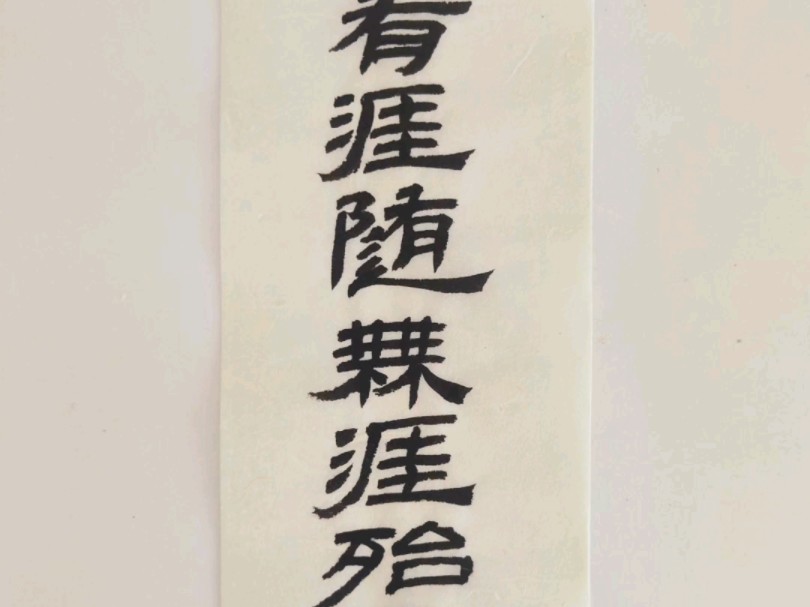 有涯随無涯殆